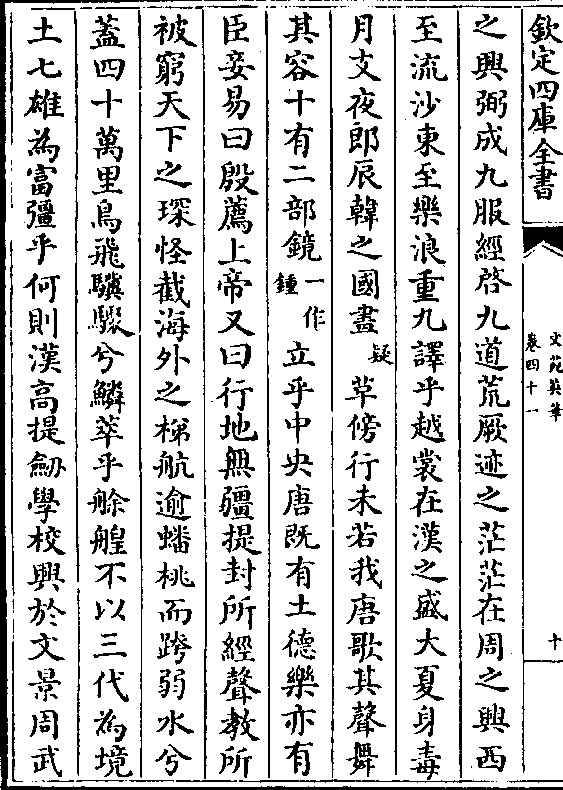 欽定四庫全書
文苑英華
卷四十一
十
之興弼成九服經啓九道荒厥迹之茫茫在周之興西
至流沙東至樂浪重九譯乎越裳在漢之盛大夏身毒
月支夜郎辰韓之國盡疑草傍行未若我唐歌其聲舞
其容十有二部鏡一作鍾立乎中央唐既有土德樂亦有
臣妾易曰殷薦上帝又曰行地無疆提封所經聲教所
被窮天下之琛怪截海外之梯航逾蟠桃而跨弱水兮
蓋四十萬里鳥飛驥騄兮鱗萃乎艅艎不以三代為境
土七雄為富彊乎何則漢高提劒學校興於文景周武